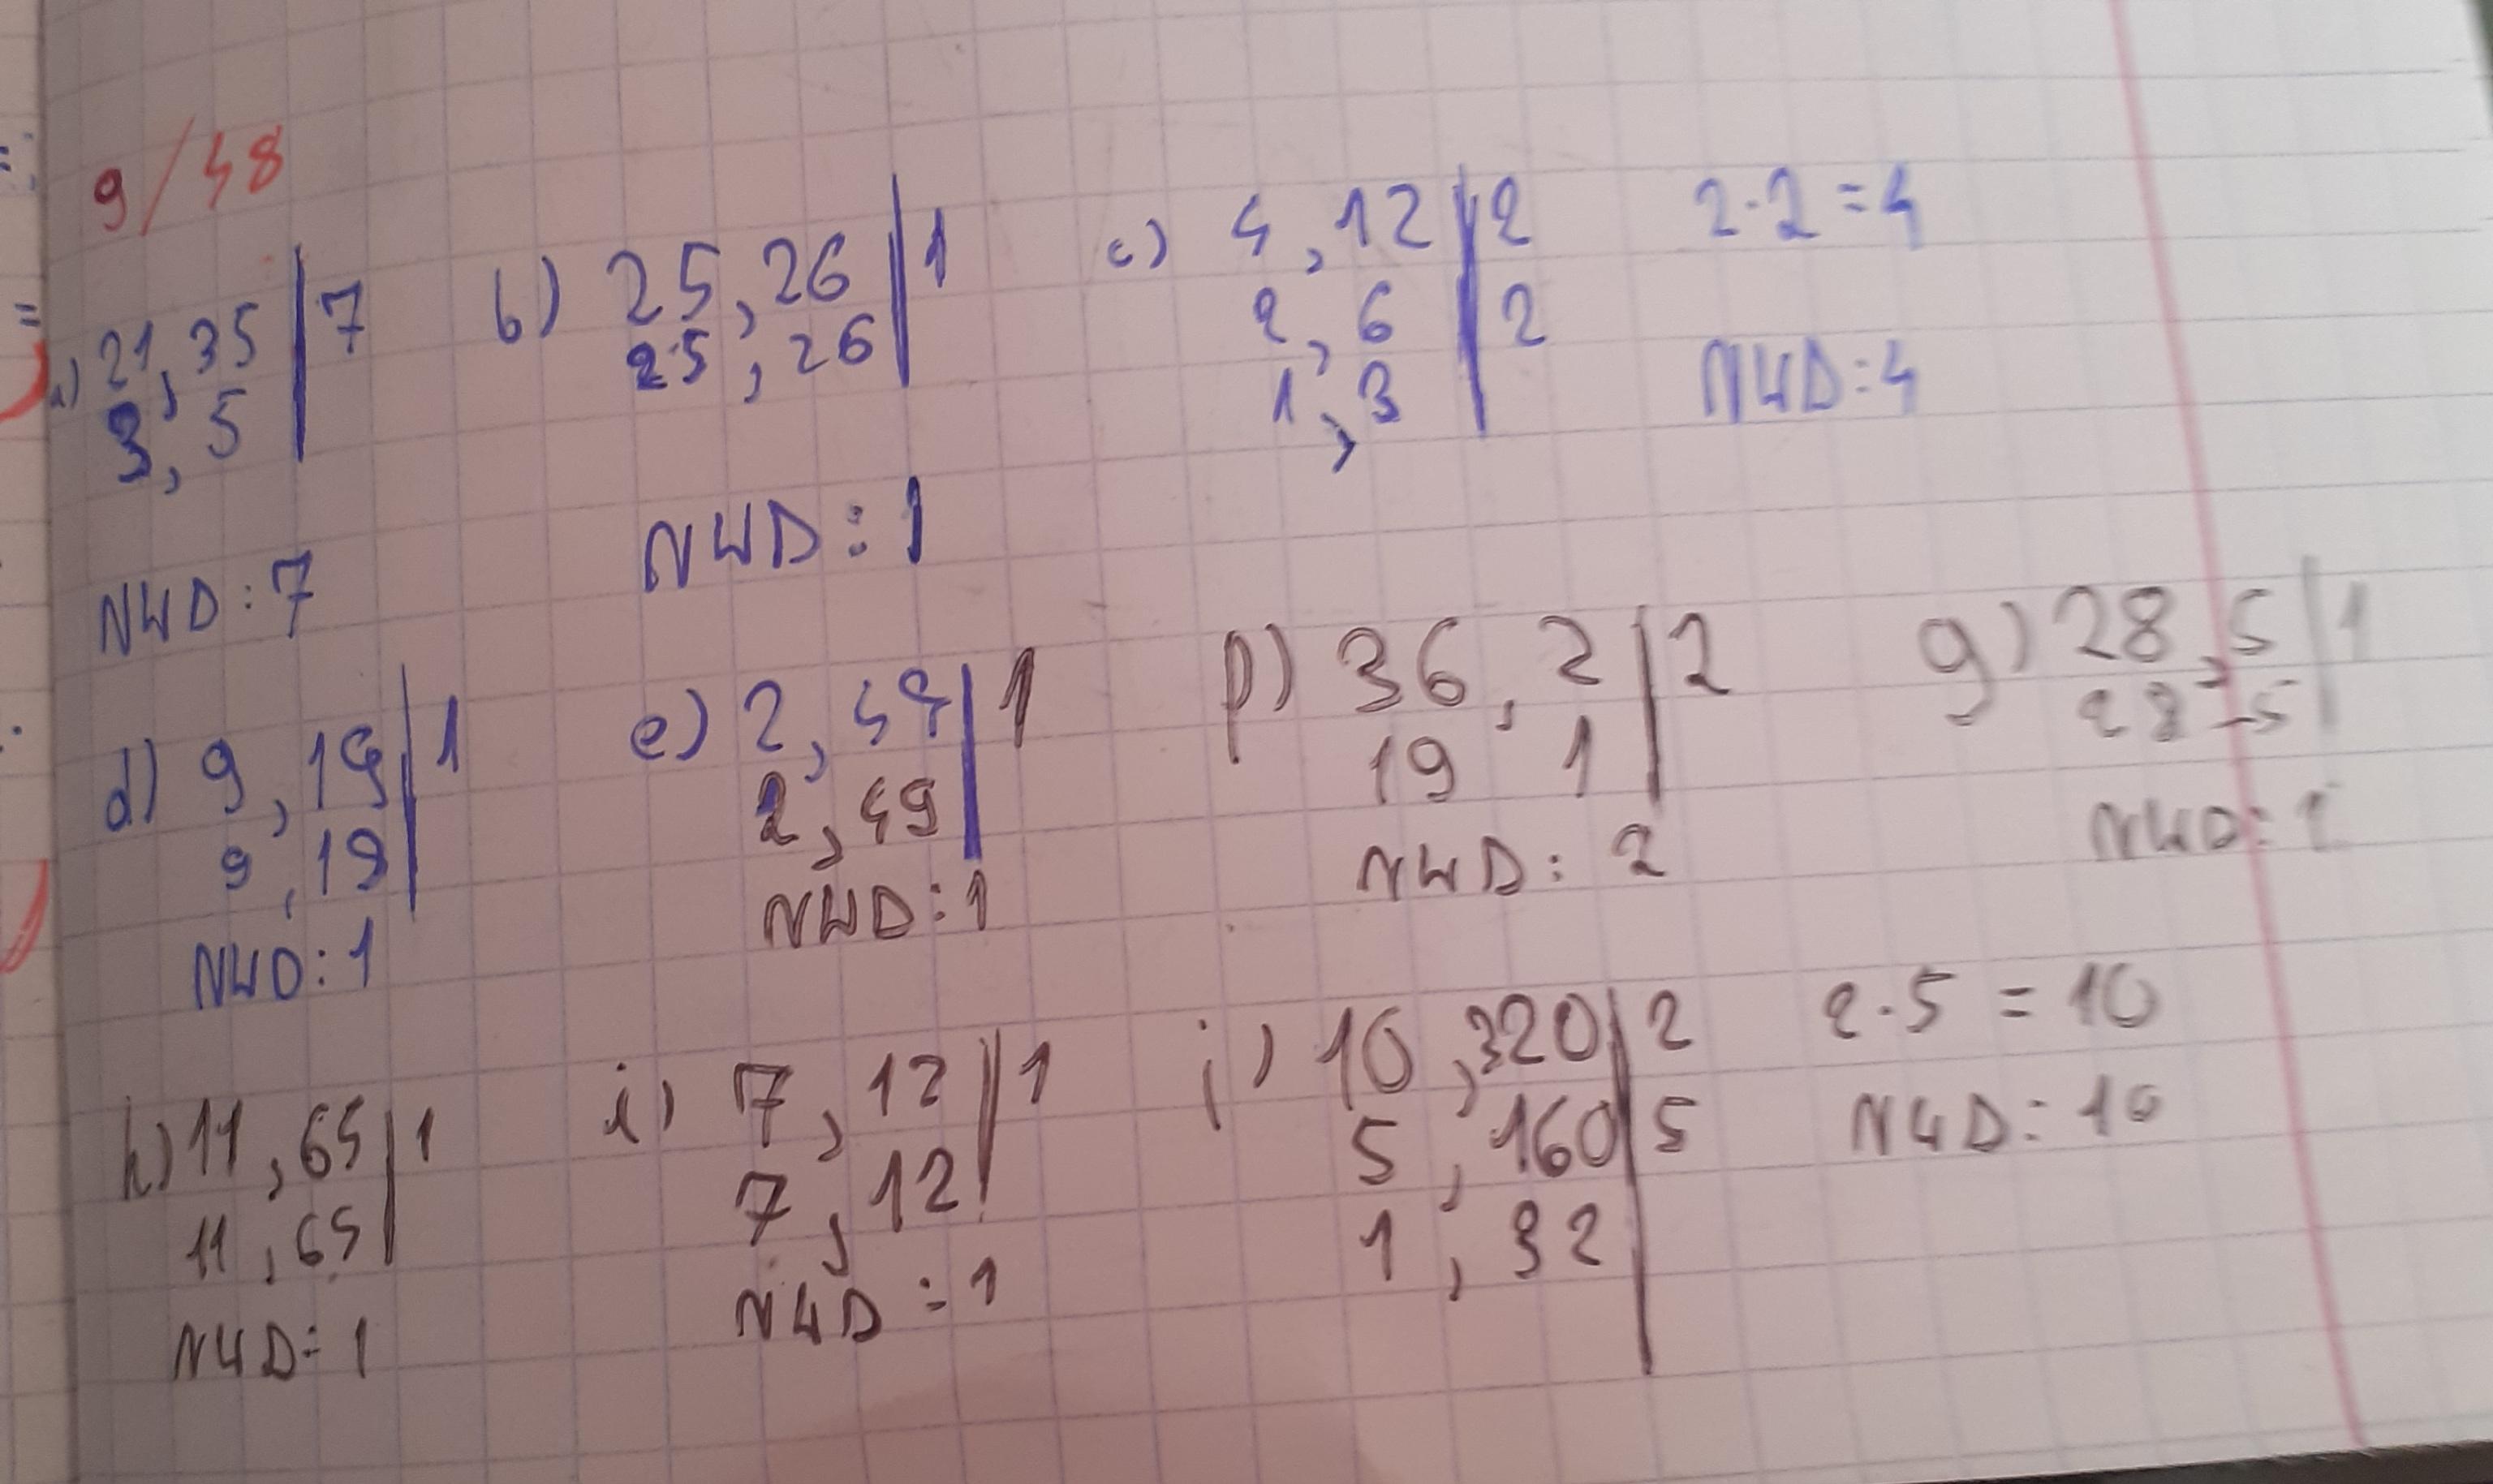 9/48
a) 21, 35 | 7
3, 5
NWD: 7
b) 25, 26 | 1
25, 26
NWD: 1
c) 4, 12 | 2 2·2=4
2, 6 | 2
1, 3 NWD: 4
d) 9, 19 | 1
9, 19
NWD: 1
e) 2, 49 | 1
2, 49
NWD: 1
f) 36, 2 | 2
19 1
NWD: 2
g) 28, 5 | 1
28, 5
NWD: 1
h) 11, 65 | 1
11, 65
NWD: 1
i) 7, 12 | 1
7, 12
NWD: 1
j) 10, 320 | 2 2·5 = 10
5, 160 | 5 NWD: 10
1, 32